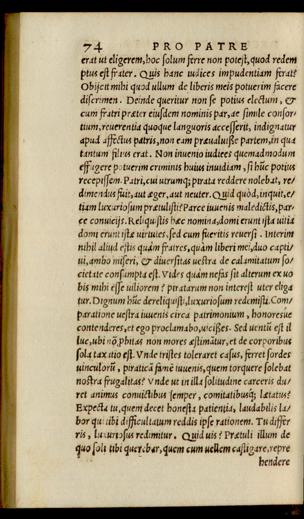 74 PRO PATRE
erat ut eligerem, hoc solum ferre non potest, quod redem
ptus est frater. Quis hanc iudices impudentiam ferat?
Obijcit mihi quod ullum de liberis meis potuerim facere
discrimen. Deinde queritur non se potius electum, &
cum fratri præter eiusdem nominis par, ac simile consor-
tium, reuerentia quoque languoris accesserit, indignatur
apud affectus patris, non eam præualuisse partem, in qua
tantum filius erat. Non inuenio iudices quemadmodum
effugere potuerim criminis huius inuidiam, si hũc potius
recepissem. Patri, cui utrumq; pirata reddere nolebat, re-
dimẽdus fuit, aut æger, aut nequẽ. Quid quòd, inquit, e-
tiam luxuriosum prætulisti? Parce iuuenis maledictis, par-
ce conuicijs. Reliquistis hæc nomina, domi erunt ista uitia
domi erunt istæ uirtutes, sed cum fueritis reuersi. Interim
nihil aliud estis quàm fratres, quàm liberi mei, duo capti-
ui, ambo miseri, & diuersitas uestra de calamitatum so-
cietate consumpta est. Vides quàm nefas sit alterum ex uo
bis mihi esse uiliorem? piratarum non interest uter eliga
tur. Dignum hũc dereliquisti, luxuriosum redemisti. Com-
paratione uestra iuuenis circa patrimonium, honoresue
contenderes, et ego proclamabo, uicisses. Sed uentũ est il
luc, ubi nõ probitas non mores æstimãtur, et de corporibus
sola taxatio est. Vnde tristes toleraret casus, ferret sordes
uinculorũ, piraticã famẽ iuuenis, quem torquere solebat
nostra frugalitas? Vnde ut in illa solitudine carceris du-
ret animus conuictibus semper, comitatibusq; lætatus?
Expecta tu, quem decet honesta patientia, laudabilis la-
bor qui tibi difficultatum reddis ipse rationem. Tu differ
ris, luxuriosus redimitur. Quid uis? Prætuli illum de
quo soli tibi querebar, quem cum uellem castigare, repre
hendere